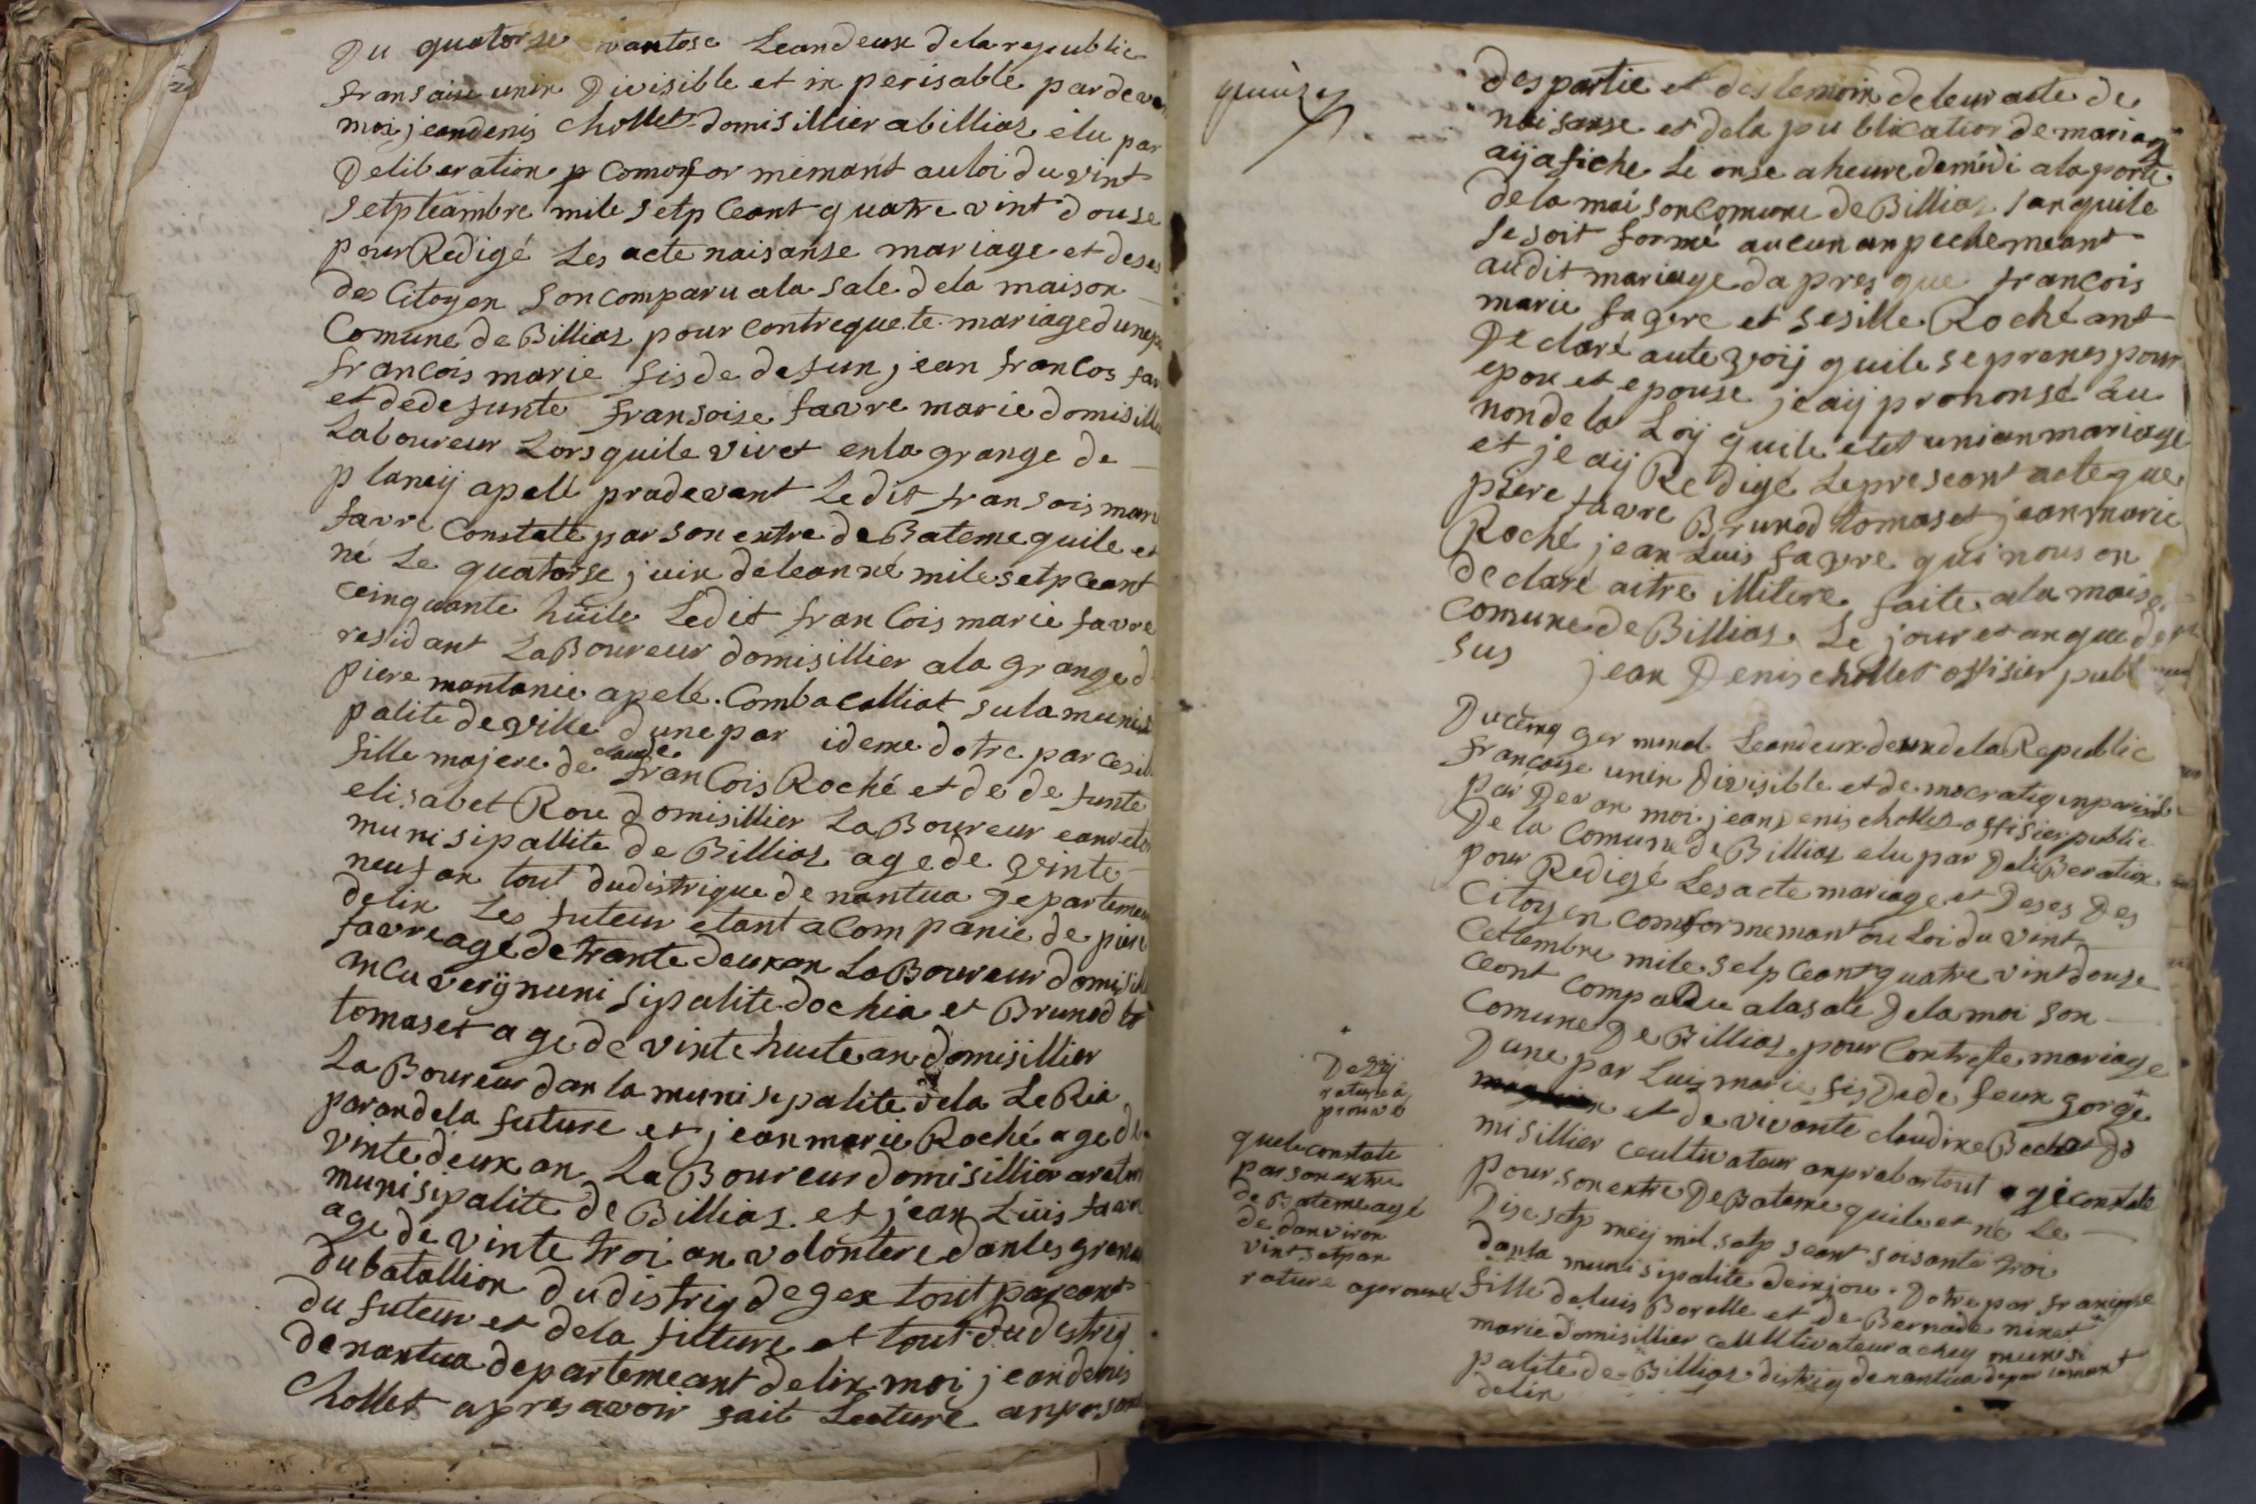 Du quatorse vantose Leandeux dela republic
fransaise unin Divisible et in perisable pardevan
moi jeandenis chollet domisillier abilliaz élu par
Deliberation p Comonformemant auloi du vint
setpteambre mile setp Ceant quatre vint douse
pour Redigé Les acte naisanse mariage et deses
des Citoyen son comparu ala sale dela maison
Comune de Billiaz pour contrequete mariage dune par
francois marie fis de defun jean francos fav
et dedefunte fransoise favre marie domisillie
Laboureur Lorsquile vivet enla grange de
planeij apellé pradevant Ledit fransois mari
favre Constaté par son extre de Bateme quile et
né Le quatorse juin deleanné mile setp ceant
ceinquante huile Ledit francois marie favre
residant LaBoureur domisillier ala grange d
piere montanie apelé Combacalliat sula munisi
palite de ville dune par ideme dotre par cesil
fille majere de claude francois Roché et de defunte
elisabet Roue domisillier LaBoureur earetet
munisipallite de Billiaz agede vinte
neuf an tout dudistrique de nantua departemen
delin Les futeur etant acompanie de piere
favre agé de trante deux an LaBoureur domisili
meuverij munisipalite dochia et Brunod to
tomaset age de vinte huite an domisillier
LaBoureur dan la munisepalite dela LeRia
paran dela future et jean marie Roché age de
vinte deux an LaBoureur domisillier aretou
munisipalite de Billiaz et jean Luis favre
age de vinte troi an volontere dan les grena
du batallion dudistriq de gex tout pareant
du futeur et dela future et tout du destriq
de nantua departemeant delin moi jeandenis
Chollet apres avoir fait Lecture anpresan
quinze
des partie et des temoin de leur acte de
naisanse et dela publication de mariage
aij afiche Le onse a heure demidi ala porte
dela maison comune de Billiaz sanquile
se soit formé aucun anpechemeant
audit mariage dapres que francois
marie fagere et sesille Roché ant
Declaré aute voij quile se pranes pour
epou et epouse jeaij prononsé au
non de la Loij quile etet uni an mariage
et jeaij Redigé Le preseant acte que
piere favre Brunod tomaset jean marie
Roché jean Luis favre qui nous on
declaré aitre illitere faite ala maiso
comune de Billiaz Le jour et an que de
sus jean Denis chollet offisier publ
Du cinq germinal Leandeux deux dela Republic
francaise unin Divisible et democratiq inperisable
par Devan moi jeandenis chollet offisier public
De la Comune de Billiaz elu par DeliBeration
pour Redigé Les acte mariage et Deses Des
Citoyen comformemant au Loi du vint
Cettembre mile setp Ceant quatre vint douse
ceont comparu alasale Dela moi son
Comune De Billiaz pour Contrete mariage
Dune par Luis marie fis De de feux gorge
et de vivante claudine Bechet Do
misillier ceultivateur anprabartout agé constate
pour son extre De Bateme quile et né Le
Dise setp meij mil setp seant soisante troi
danla munisipalite deinjou Dotre par franipse
fille deluis Borelle et de Bernade ninet
marie domisillier ceulltivateur achey munisi
palite de Billiaz distriq denantua departemant
delin
+
Degij
rature a
prouvé
quele constate
par son extre
de Bateme agé
de danviron
vint setp an
rature aprouvé